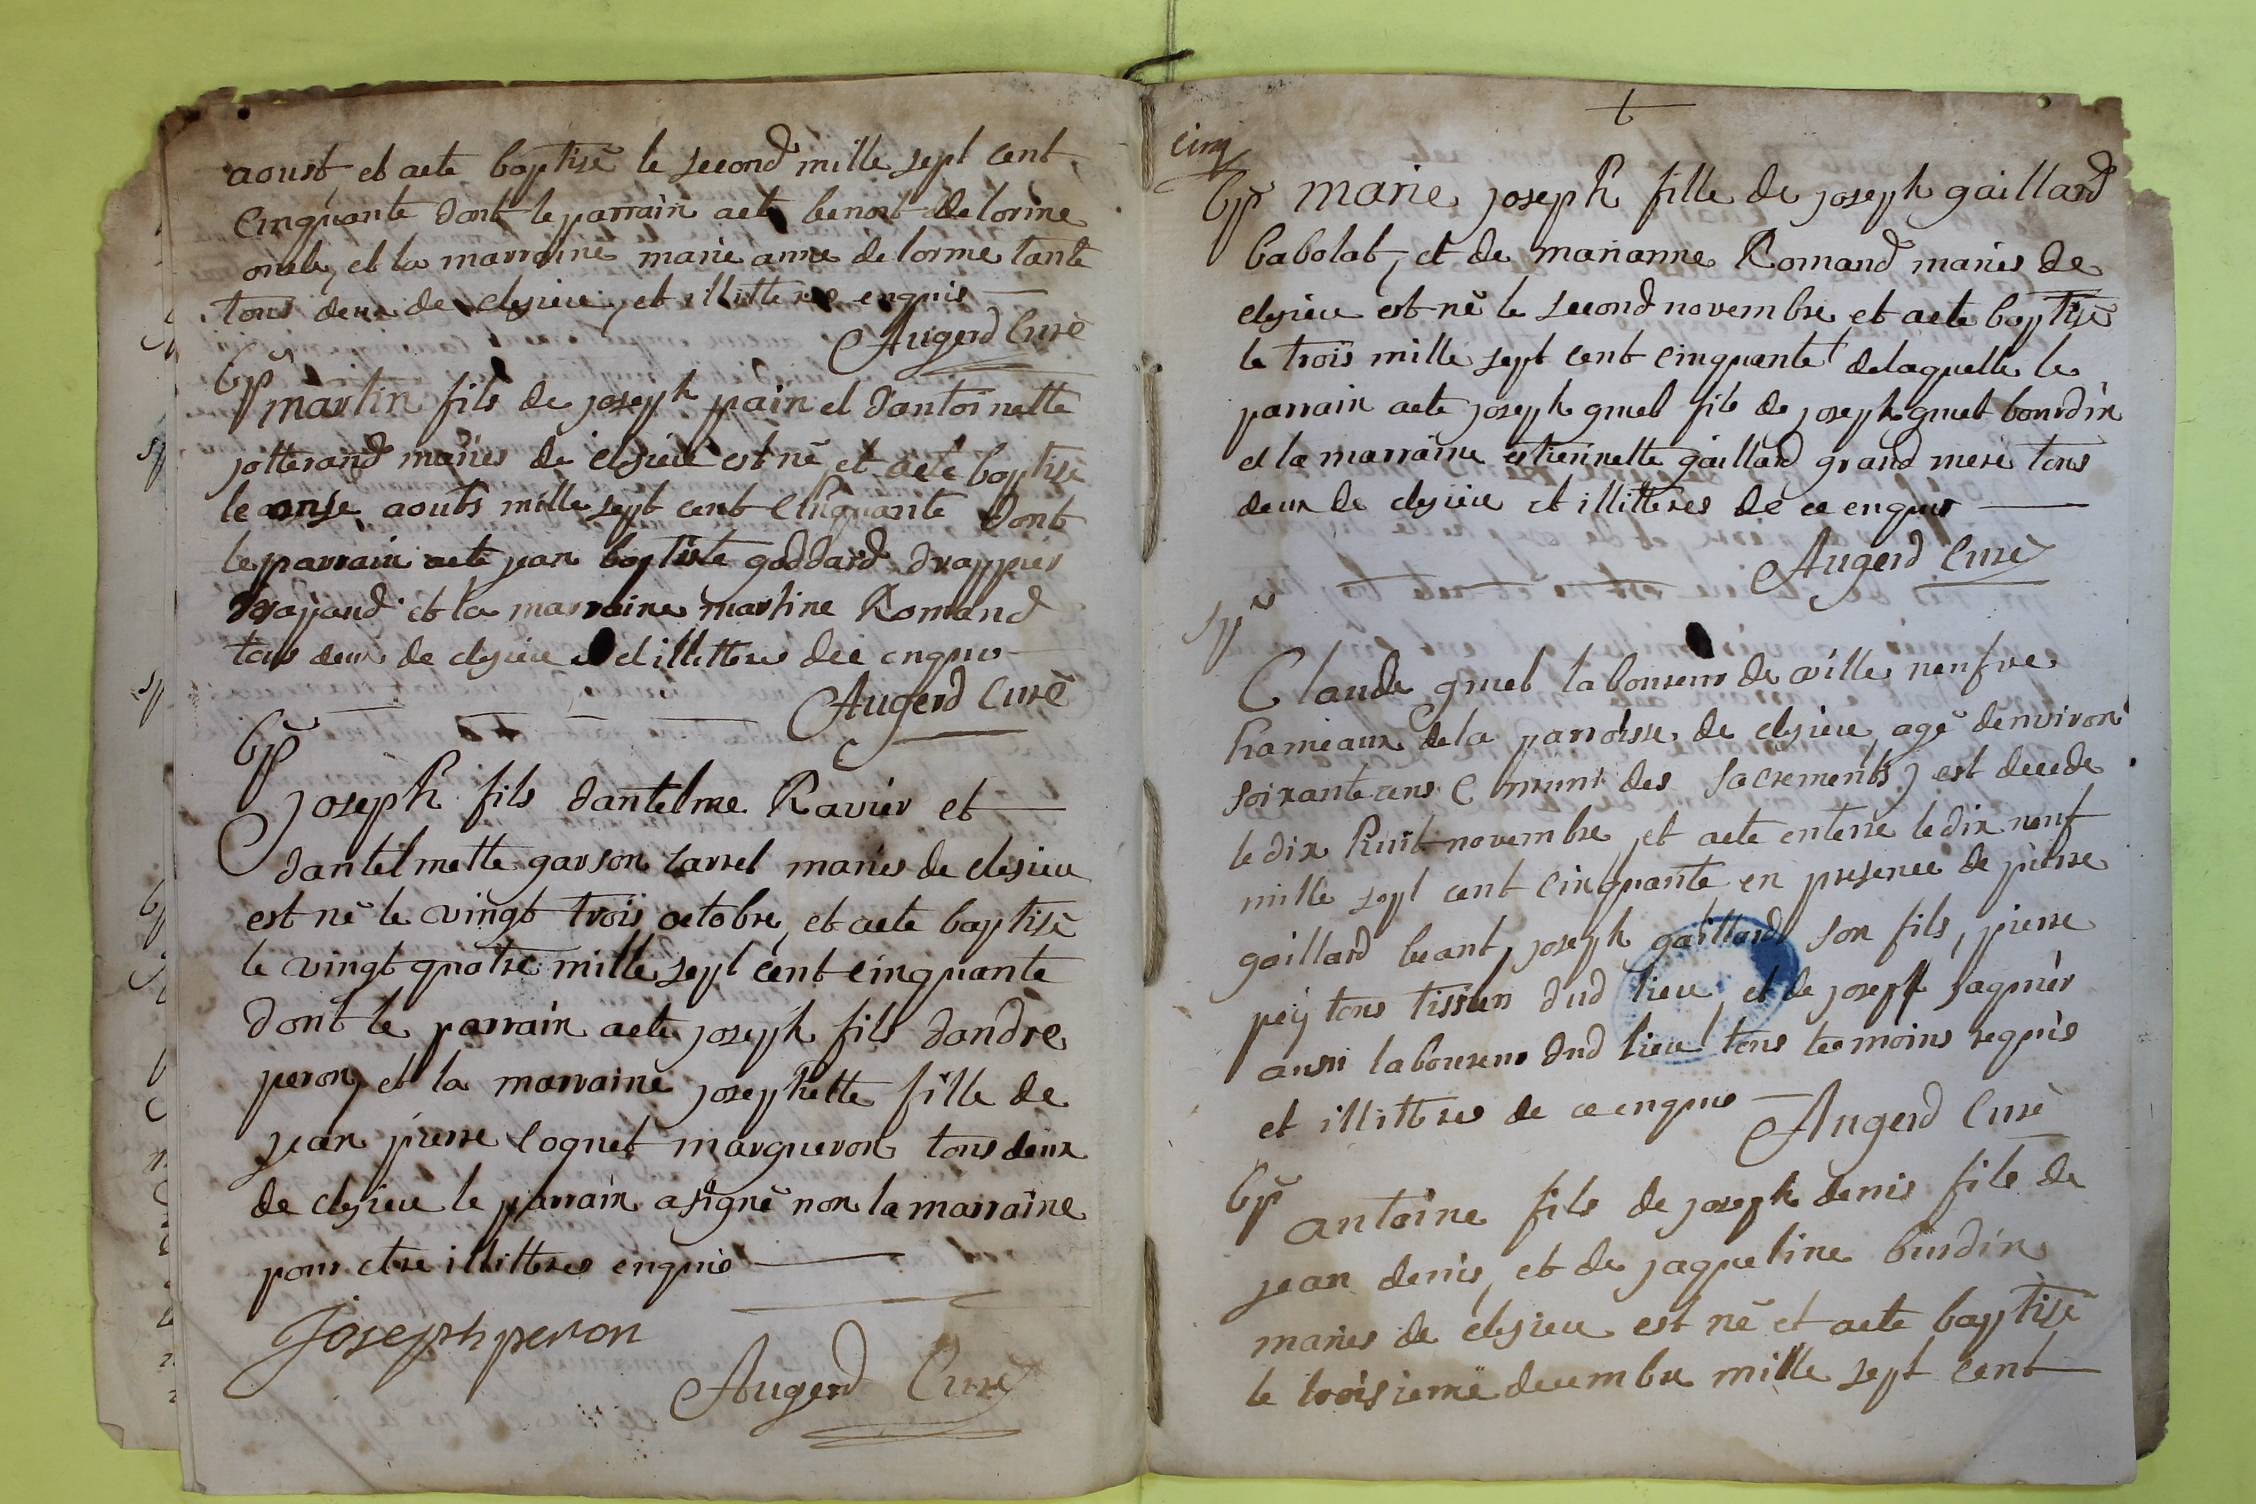 aoust, et aete baptisé le second mille sept cent
cinquante dont le parrain aete benoit delorme
oncle, et la marraine marie anne delorme tante
tous deux de clezieu, et illitteres enquis
Augerd Curé
bp
martin fils de joseph pain et d'antoinette
jotterand mariés de clezieu est né et aeté baptisé
le onze aouts mille sept cent cinquante dont
le parrain aete jean baptiste goddard drappier
drapand et la marraine martine Romand
tous deux de clezieu et illitteres de ce enquis
Augerd Curé
bp
joseph fils dantelme Ravier et
dantelmette garson carrel mariés de clesieu
est né le vingt trois octobre, et aete baptisé
le vingt quatre mille sept cent cinquante
dont le parrain aete joseph fils dandre
peron, et la marraine josephette fille de
jean pierre coquet margueron tous deux
de clezieu le parrain a signé non la marraine
pour etre illitteres enquis
Joseph peron
Augerd Curé
cinq
bp marie joseph fille de joseph gaillard
babolat, et de marianne Romand mariés de
clezieu est né le second novembre et aete baptisé
le trois mille sept cent cinquante delaquelle le
parrain aete joseph gruet fils de joseph gruet bourdin
et la marraine estiennette gaillard grand mere tous
deux de clezieu et illitteres de ce enquis
Augerd Curé
spr
Claude gruet laboureur de ville neufve
hameaux dela parroisse de clezieu, agé denviron
soixante ans (muni des sacrements) est decede
le dix huit novembre, et aete enterré le dix neuf
mille sept cent cinquante en presence de pierre
gaillard buant, joseph gaillard son fils, pierre
pey tous tissien dud lieu, et de joseph sagnier
aussi laboureur dud lieu tous temoins requis
et illitteres de ce enquis
Augerd Curé
bp
antoine fils de joseph denis fils de
jean denis, et de jaqueline burdin
mariés de clezieu est né et aete baptisé
le troisieme decembre mille sept cent